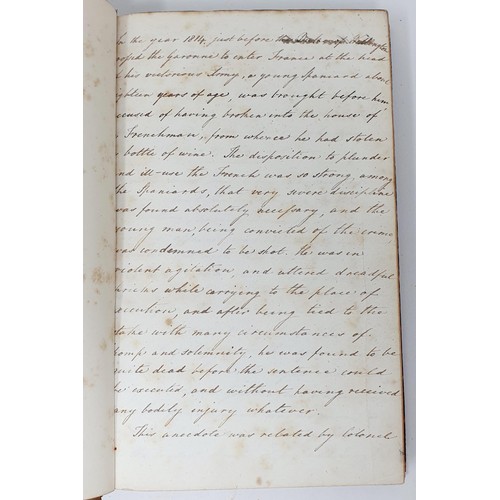 the year 1814, just before the Duke of Wellington
crossed the Garonne to enter France at the head
his victorious Army, a young Spaniard about
eighteen years of age, was brought before him
accused of having broken into the house of
Frenchman, from whence he had stolen
bottle of wine. The disposition to plunder
and ill-use the French was so strong, among
the Spaniards, that very severe discipline
was found absolutely necessary, and the
young man, being convicted of the crime
was condemned to be shot. He was in
violent agitation, and uttered dreadful
shrieks while carrying to the place of
execution, and after being tied to the
stake with many circumstances of
pomp and solemnity, he was found to be
quite dead before the sentence could
be executed, and without having received
any bodily injury whatever.
This anecdote was related by Colonel